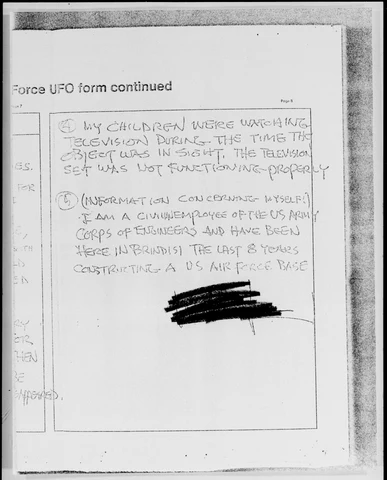 Force UFO form continued
Page 6
(A) MY CHILDREN WERE WATCHING
TELEVISION DURING THE TIME THE
OBJECT WAS IN SIGHT. THE TELEVISION
SET WAS NOT FUNCTIONING PROPERLY
(INFORMATION CONCERNING MYSELF:)
I AM A CIVIL EMPLOYEE OF THE US ARMY
CORPS OF ENGINEERS AND HAVE BEEN
HERE IN BRINDISI THE LAST 8 YEARS
CONSTRUCTING A US AIR FORCE BASE
FOR